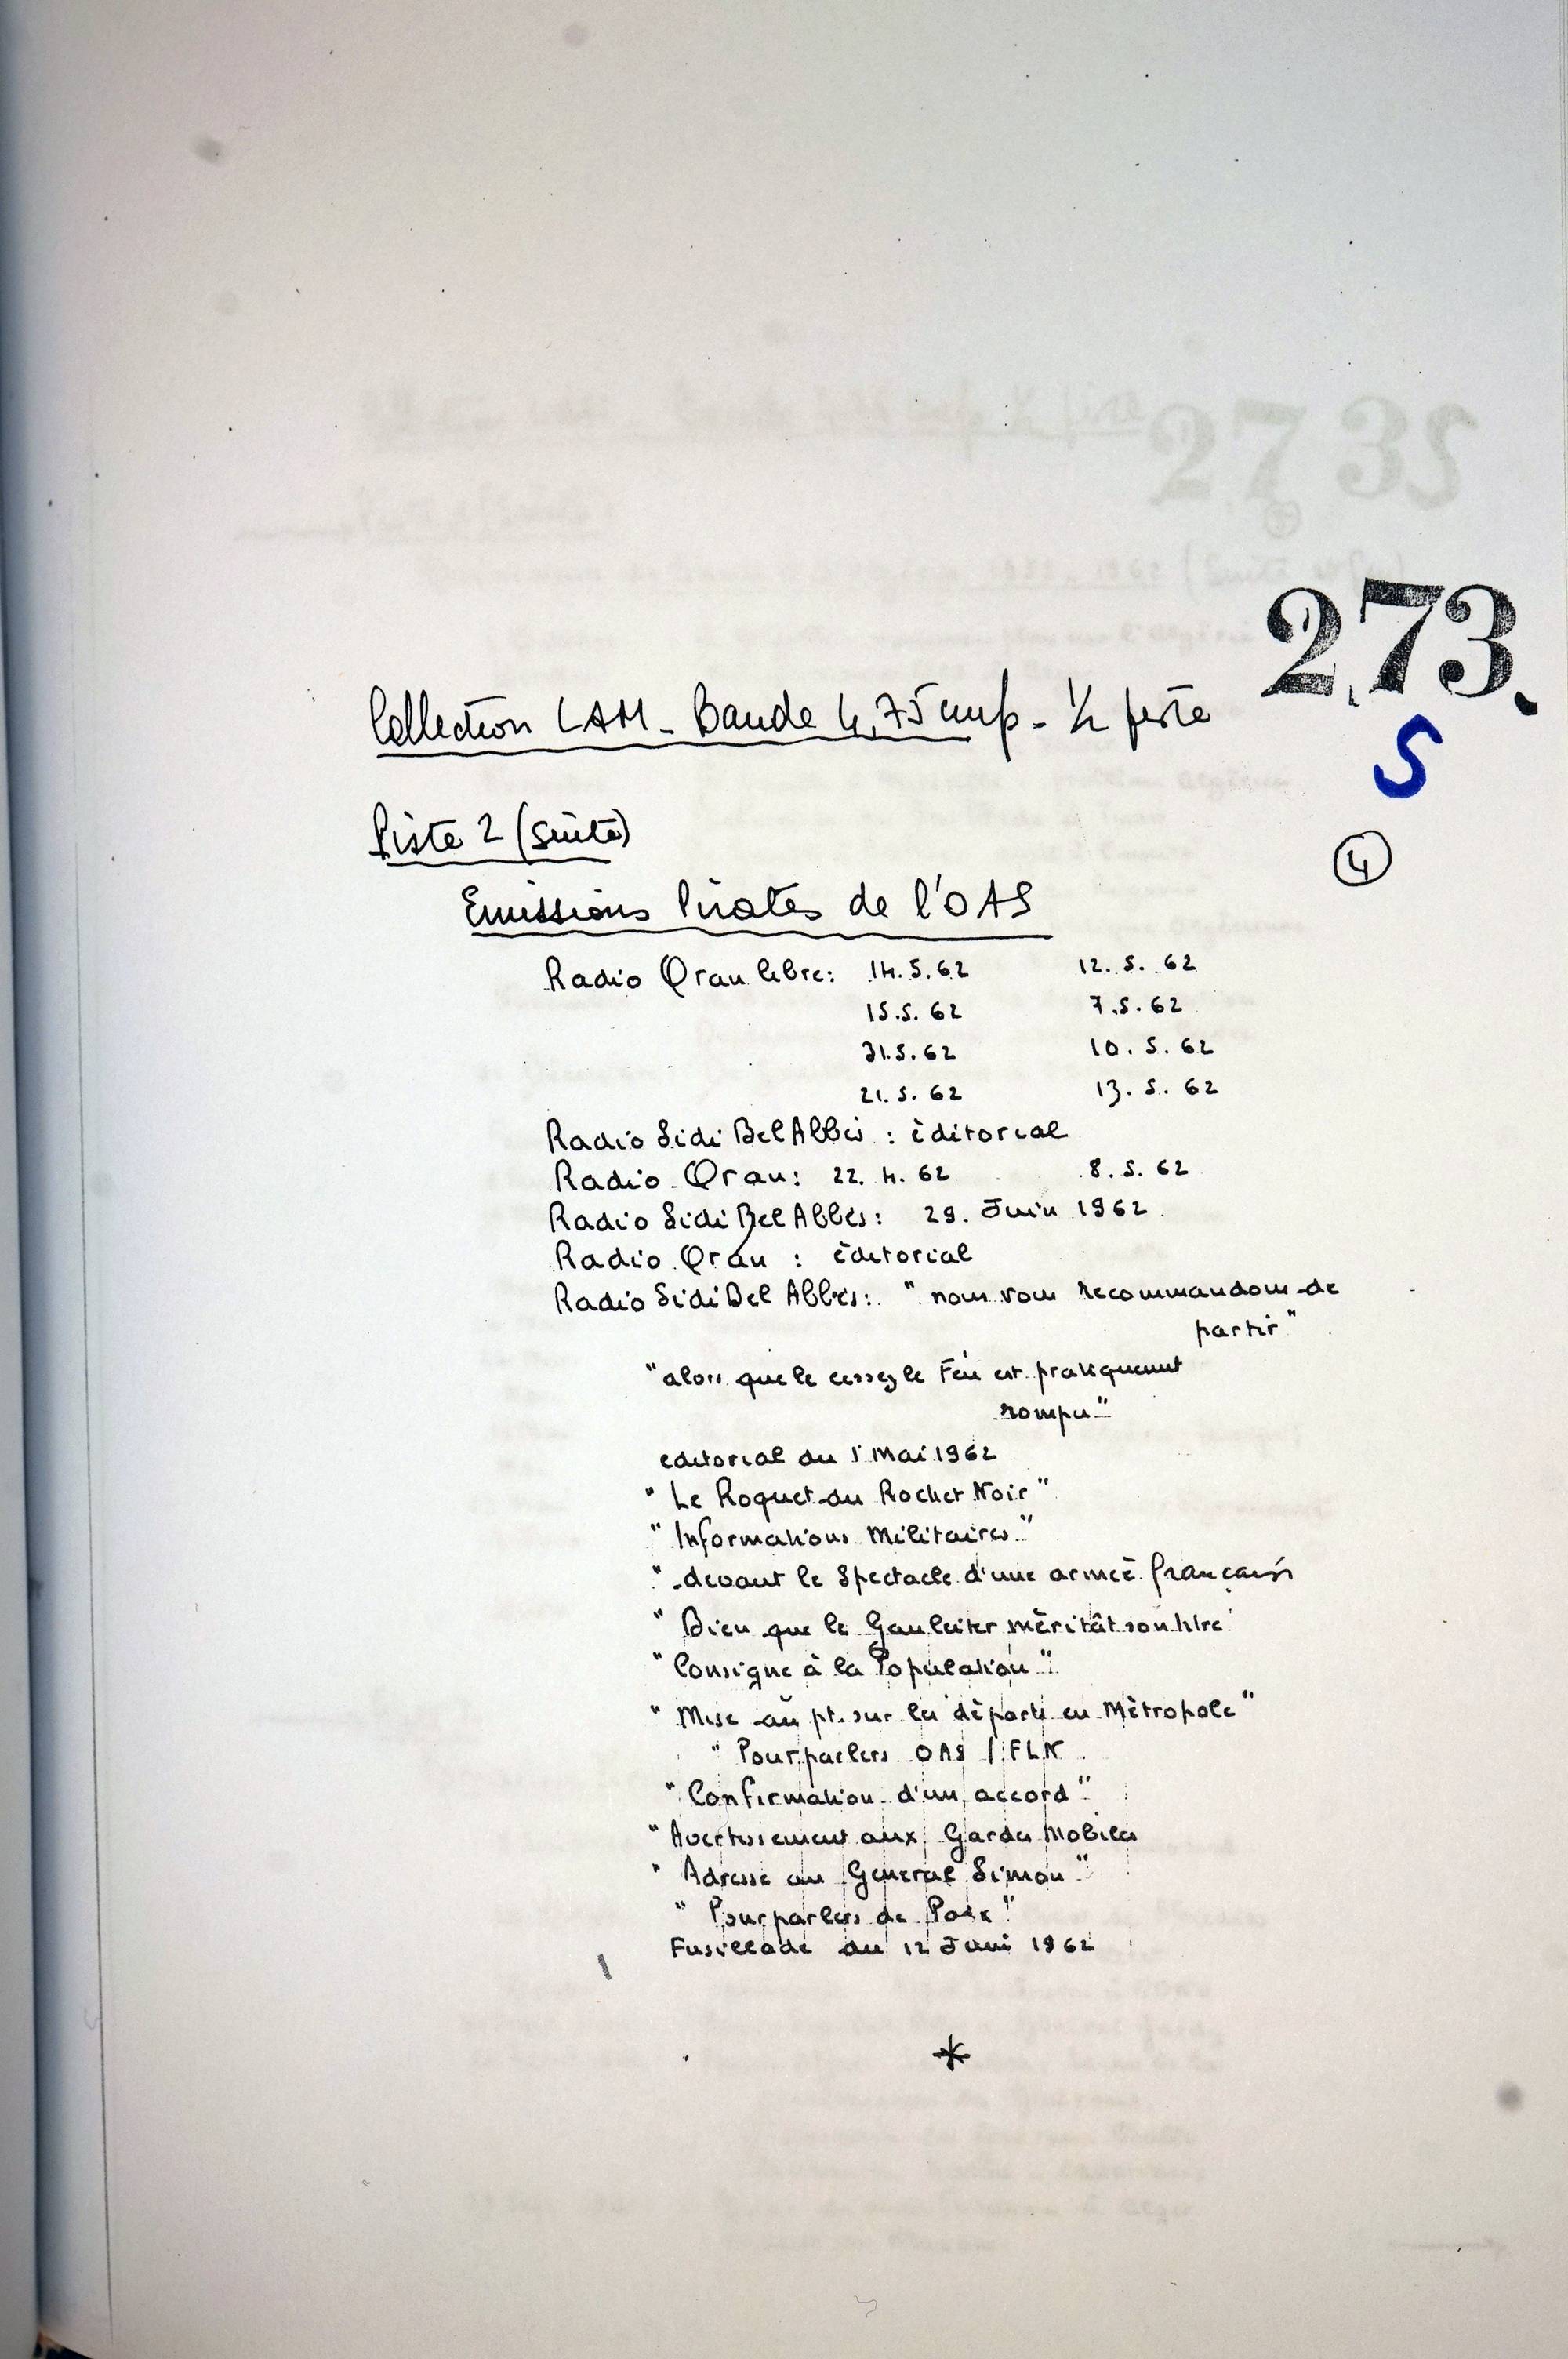 273.
S
Collection LAM - Bande 4,75 cm/s - ½ piste
4
Piste 2 (suite)
Emissions Pirates de l'OAS
Radio Oran libre: 14.5.62 12.5.62
15.5.62 7.5.62
31.5.62 10.5.62
21.5.62 13.5.62
Radio Sidi Bel Abbès : éditorial
Radio Oran: 22.4.62 8.5.62
Radio Sidi Bel Abbès: 29. Juin 1962.
Radio Oran : éditorial
Radio Sidi Bel Abbès: "nous vous recommandons de
partir"
"alors que le cessez le Feu est pratiquement
rompu"
editorial du 1 Mai 1962
"Le Roquet du Rocher Noir"
"Informations Militaires"
"devant le Spectacle d'une armée française
"Bien que le Gauleiter méritât son titre
"Consigne à la Population"
"Mise au pt. sur les départs en Métropole"
"Pourparlers OAS / FLN
"Confirmation d'un accord"
"Avertissement aux Gardes Mobiles
"Adresse au General Simon"
"Pourparlers de Paix"
Fusillade du 12 Juin 1962
*